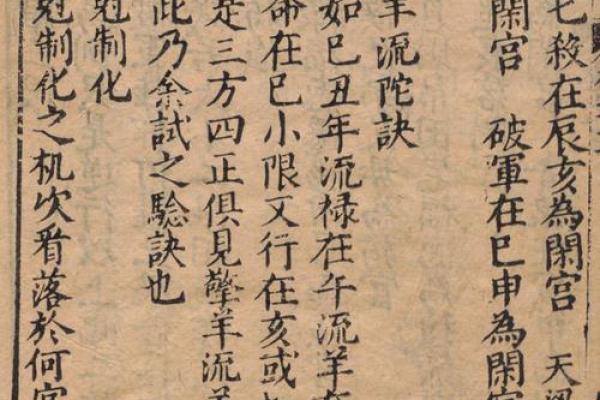 七殺在辰亥為閑宮 天梁
閑宮 破軍在巳申為閑宮
羊流陀訣
如巳丑年流禄在午流羊
命在巳小限又行在亥或
是三方四正俱見擎羊流羊
此乃余試之驗訣也
尅制化
尅制化之机次看落於何宮